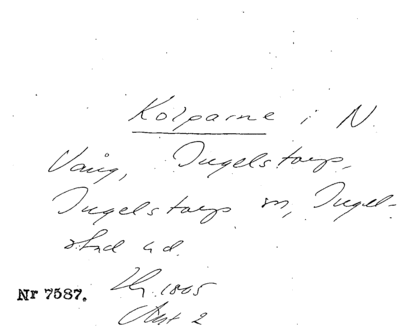 Kolparne i N.
Vång, Ingelstorp,
Ingelstorps sn, Ingel-
stad hd.
Nr 7587. 1805
Akt 2